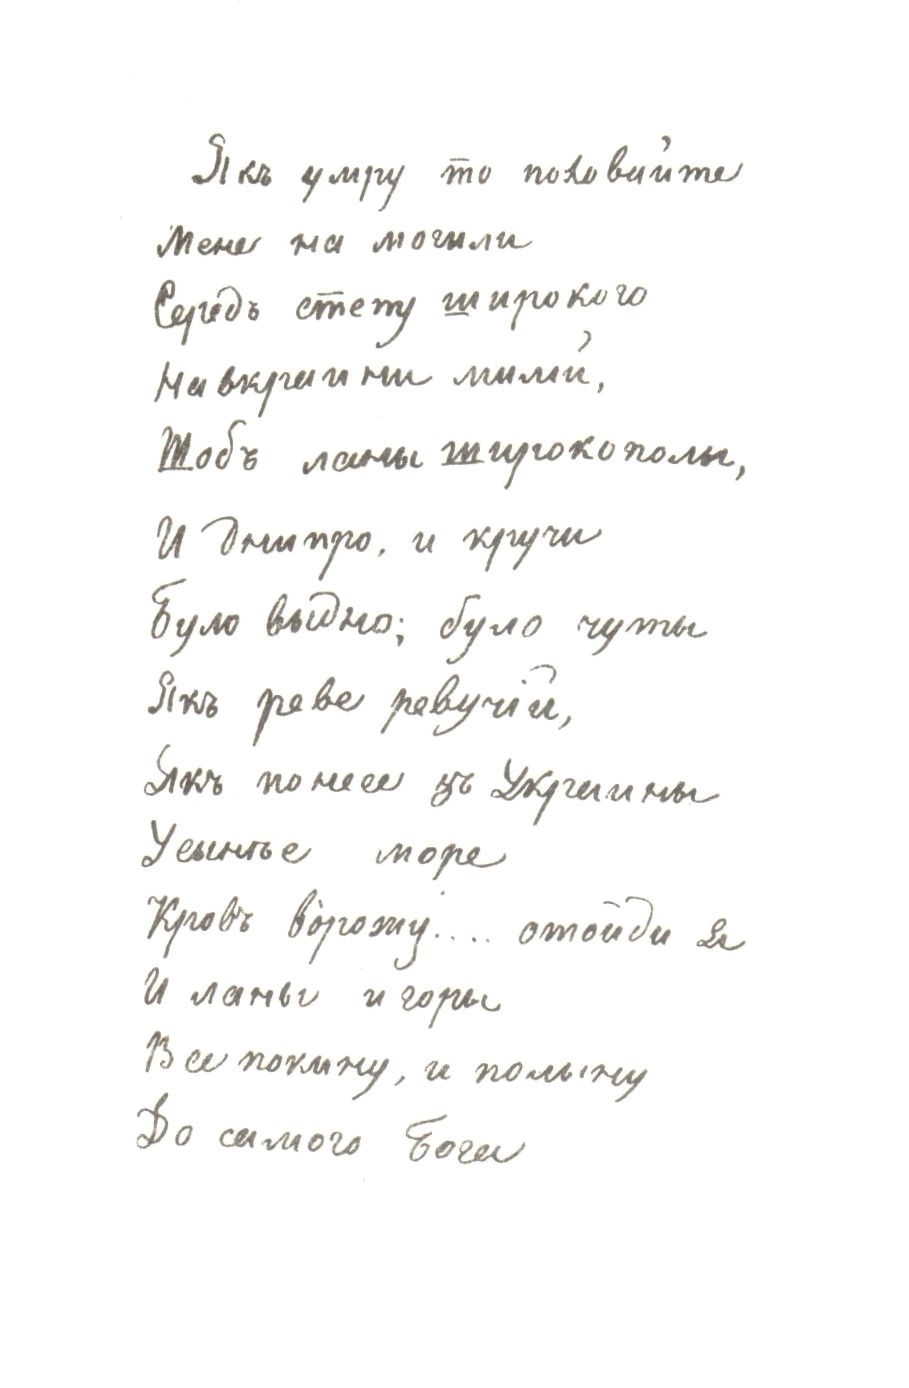 Якъ умру то поховайте
Мене на могили
Середъ степу широкого
На вкраини милій,
Шобъ ланы широкополы,
И Днипро, и кручи
Було выдно; було чуты
Якъ реве ревучій,
Якъ понесе зъ Украины
У сынѣе море
Кровъ ворожу.... отойди я
И ланы и горы
Все покину, и полыну
До самого Бога